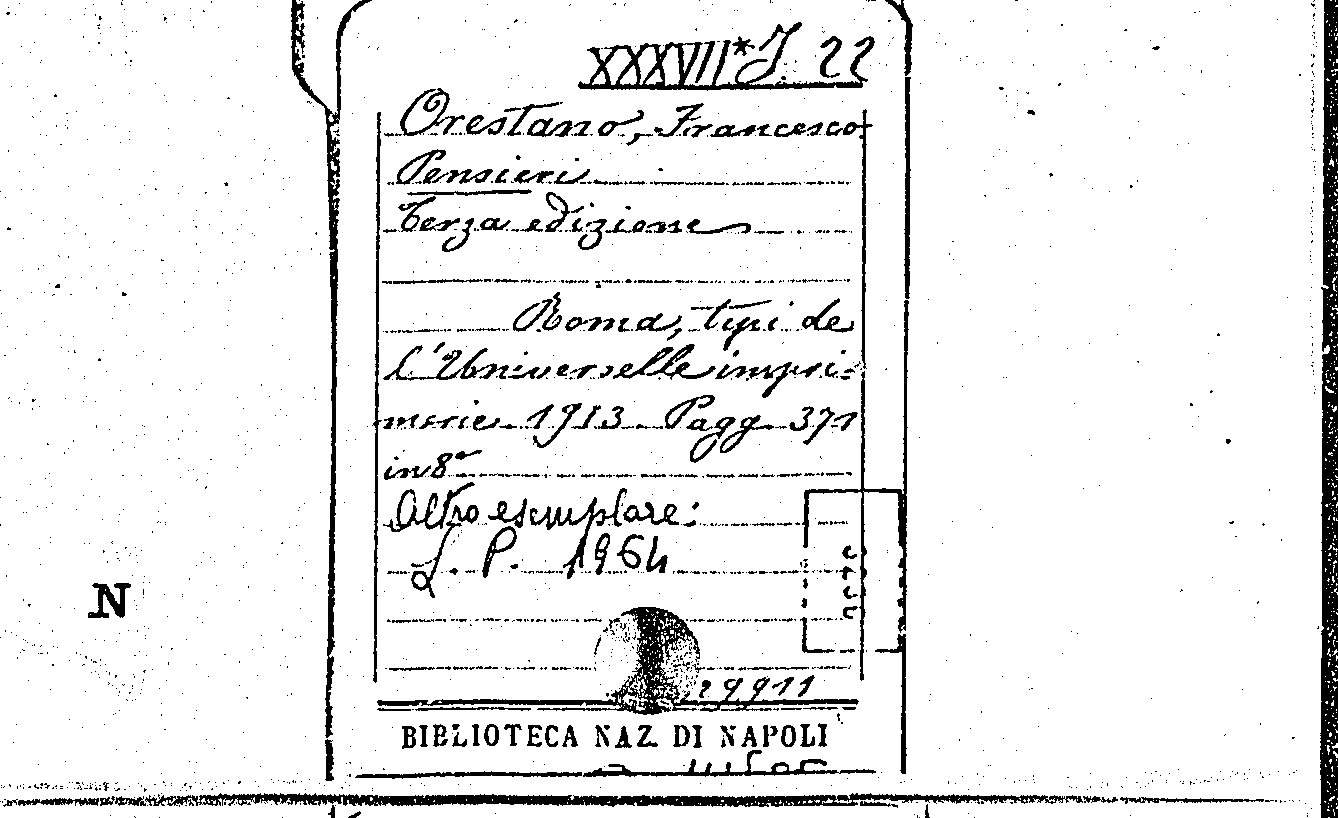 XXXVII*J. 22
Orestano, Francesco
Pensieri
Terza edizione
Roma, tipi de
l'Universelle impri-
merie. 1913. Pagg. 371
in 8º
Altro esemplare:
L. P. 1964
N
29911
BIBLIOTECA NAZ. DI NAPOLI